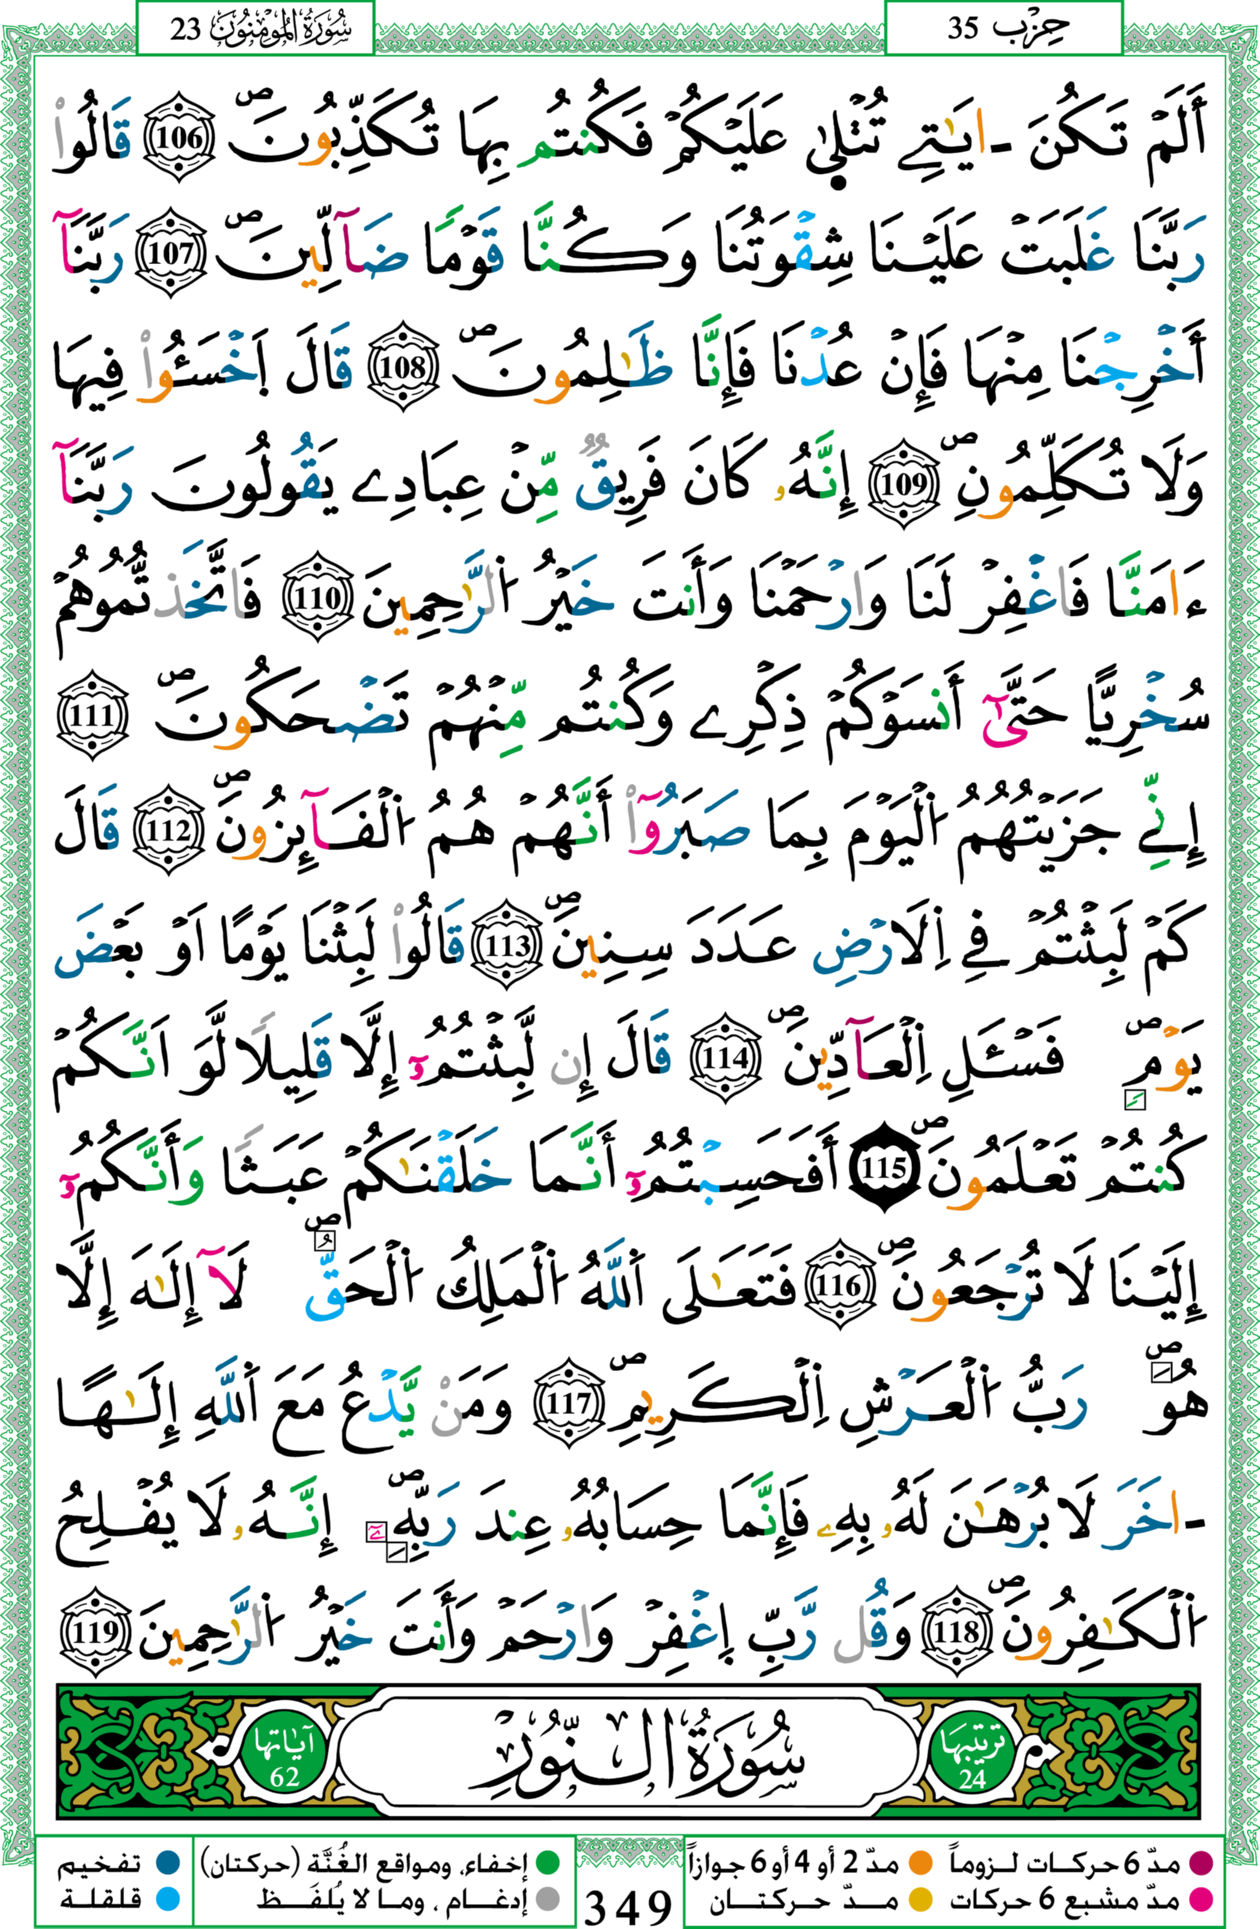 حِزْب 35
سُورَةُ الْمُومِنُونَ 23
أَلَمْ تَكُنَ ـ ايَٰتِے تُتْل۪يٰ عَلَيْكُمْ فَكُنتُم بِهَا تُكَذِّبُونَۖ 106 قَالُواْ
رَبَّنَا غَلَبَتْ عَلَيْنَا شِقْوَتُنَا وَكُنَّا قَوْمًا ضَآلِّينَۖ 107 رَبَّنَآ
أَخْرِجْنَا مِنْهَا فَإِنْ عُدْنَا فَإِنَّا ظَٰلِمُونَۖ 108 قَالَ اَ۪خْسَـُٔواْ فِيهَا
وَلَا تُكَلِّمُونِۖ 109 إِنَّهُۥ كَانَ فَرِيقٞ مِّنْ عِبَادِے يَقُولُونَ رَبَّنَآ
ءَامَنَّا فَاغْفِرْ لَنَا وَارْحَمْنَا وَأَنتَ خَيْرُ اُ۬لرَّٰحِمِينَ 110 فَاتَّخَذتُّمُوهُمْ
سُخْرِيًّا حَتَّىٰٓ أَنسَوْكُمْ ذِكْرِے وَكُنتُم مِّنْهُمْ تَضْحَكُونَۖ 111
إِنِّے جَزَيْتُهُمُ اُ۬لْيَوْمَ بِمَا صَبَرُوٓاْ أَنَّهُمْ هُمُ اُ۬لْفَآئِزُونَۖ 112 قَالَ
كَمْ لَبِثْتُمْ فِے اِ۬لَارْضِ عَدَدَ سِنِينَۖ 113 قَالُواْ لَبِثْنَا يَوْمًا اَوْ بَعْضَ
يَوْمٖۖ فَسْـَٔلِ اِ۬لْعَآدِّينَۖ 114 قَالَ إِن لَّبِثْتُمُۥٓ إِلَّا قَلِيلًا لَّوَ اَنَّكُمْ
كُنتُمْ تَعْلَمُونَۖ 115 أَفَحَسِبْتُمُۥٓ أَنَّمَا خَلَقْنَٰكُمْ عَبَثًا وَأَنَّكُمُۥٓ
إِلَيْنَا لَا تُرْجَعُونَۖ 116 فَتَعَٰلَى اَ۬للَّهُ اُ۬لْمَلِكُ اُ۬لْحَقُّۖ لَآ إِلَٰهَ إِلَّا
هُوَۖ رَبُّ اُ۬لْعَرْشِ اِ۬لْكَرِيمِۖ 117 وَمَنْ يَّدْعُ مَعَ اَ۬للَّهِ إِلَٰهًا
ـ اخَرَ لَا بُرْهَٰنَ لَهُۥ بِهِۦ فَإِنَّمَا حِسَابُهُۥ عِندَ رَبِّهِۦٓۖ إِنَّهُۥ لَا يُفْلِحُ
اُ۬لْكَٰفِرُونَۖ 118 وَقُل رَّبِّ اِ۪غْفِرْ وَارْحَمْ وَأَنتَ خَيْرُ اُ۬لرَّٰحِمِينَ 119
ترتيبها 24 سُورَةُ النُّورِ آياتها 62
مدّ 6 حركات لـزوماً مدّ 2 أو 4 أو 6 جوازاً إخفاء، ومواقع الغُنَّة (حركتان) تفخيم
مدّ مشبع 6 حركات مـدّ حـركتـان 349 إدغام ، وما لا يُلفَـظ قلقلة